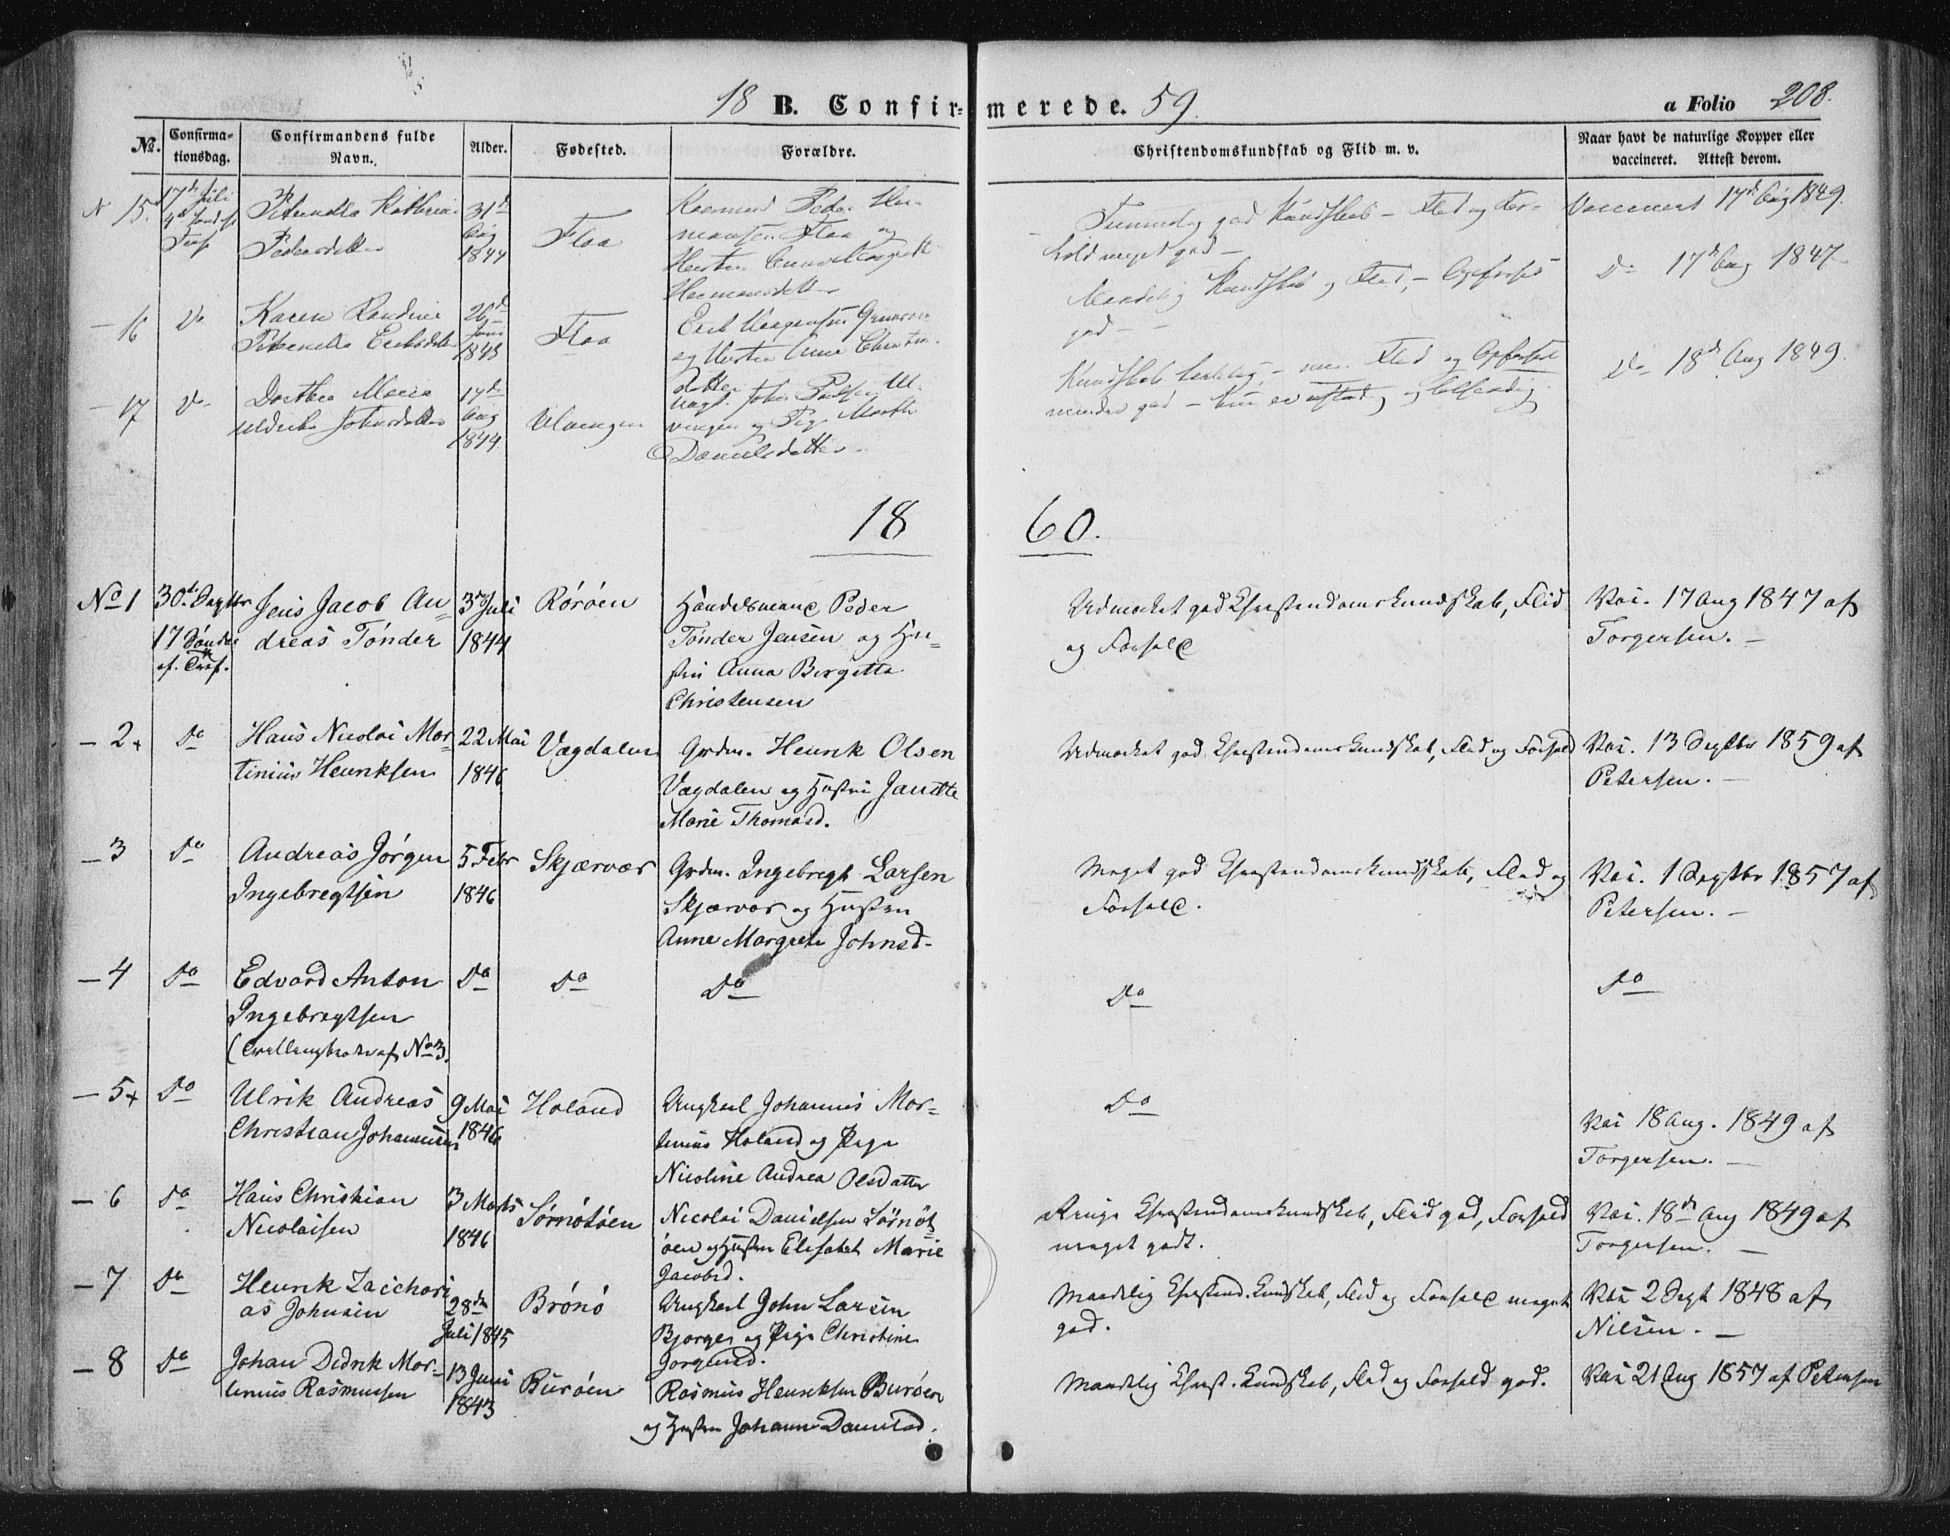 18 B. Confirmerede. 59. a Folio 208.
No. Confirmationsdag. Confirmandens fulde Navn. Alder. Fødested. Forældre. Christendomskundskab og Flid m. v. Naar havt de naturlige Kopper eller vaccineret. Attest derom.
15. 17de Juli
Pedersdatter
31te Aug 1844
Flaa
Flaa og
god Kundskab - Flid og For-
hold meget god -
17de Aug 1849.
16 Do
Karen
26de Juni 1845
Flaa
Maadelig Kundskab og Flid, -
god -
Do 17de Aug 1847
17 Do
Dorthea Maria
Johnsdatter
17de Aug 1844
og Pige
Danielsdatter
Flid og
Do 18de Aug 1849.
18 60.
No 1 30te Septbr
17 Sønd.
ef. Tref.
Jens Jacob An-
dreas Tønder
3de Juli
1844
Rørøen
Handelsmand Peder
Tønder Jensen og Hu-
stru Anna Birgitta
Christensen
Udmærket god Christendomskundskab, Flid
og Forhold
Vac. 17 Aug 1847 af
Torgersen. -
- 2+ Do
Hans Nicolai Mor-
tinius Henriksen
22 Mai
1846
Vægdalen
Grdm. Henrik Olsen
Vægdalen og Hustru Janette
Marie Thomasd.
Udmærket god Christendomskundskab, Flid og Forhold
Vac. 13 Septbr 1859 af
Petersen. -
- 3 Do
Andreas Jørgen
Ingebregtsen
5 Febr
1846
Skjærvær
Grdm. Ingebregt Larsen
Skjærvær og Hustru
Anne Margrete Johnsd-
Meget god Christendomskundskab, Flid og
Forhold.
Vac. 1 Septbr 1857 af
Petersen. -
- 4 Do
Edvard Anton
Ingebregtsen
(Tvillingbroder af No 3.
Do
Do
Do
Do
Do
- 5+ Do
Ulrik Andreas
Christian Johannesen
9 Mai
1846
Holand
Ungkarl Johannes Mor-
tinius Holand og Pige
Nicoline Andrea Olsdatter
Do
Vac 18 Aug. 1849 af
Torgersen. -
- 6 Do
Hans Christian
Nicolaisen
3 Marts
1846
Sørnøtøen
Nicolai Danielsen Sørnøt-
øen og Hustru Elisabet Marie
Jacobsd.
Ringe Christendomskundskab, Flid god, Forhold
meget godt.
Vac. 18de Aug 1849 af
Torgersen. -
- 7 Do
Henrik Zacchari-
as Johnsen
28de
Juli 1845
Brønø
Ungkarl John Larsen
Bjorger og Pige Christine
Jørgensd.
Maadelig Christend. kundskab, Flid og Forhold meget
god.
Vac 2 Sept 1848 af
Nilsen. -
- 8 Do
Johan Didrik Mor-
tinius Rasmussen
13 Juni
1843
Burøen
Rasmus Henriksen Burøen
og Hustru Johanna Danielsd.
Maadelig Christ. kundskab, Flid og Forhold god.
Vac 21 Aug 1857 af Petersen